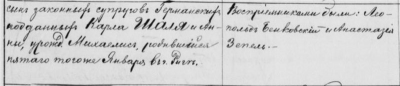 сынъ законныхъ супруговъ Германскихъ
подданныхъ Карла Шаля и Ан-
ны, урожд. Михаелисъ, родившійся
пятаго тогоже Января въ Ригѣ.
Воспріемниками были: Лео-
польдъ и Анастасія